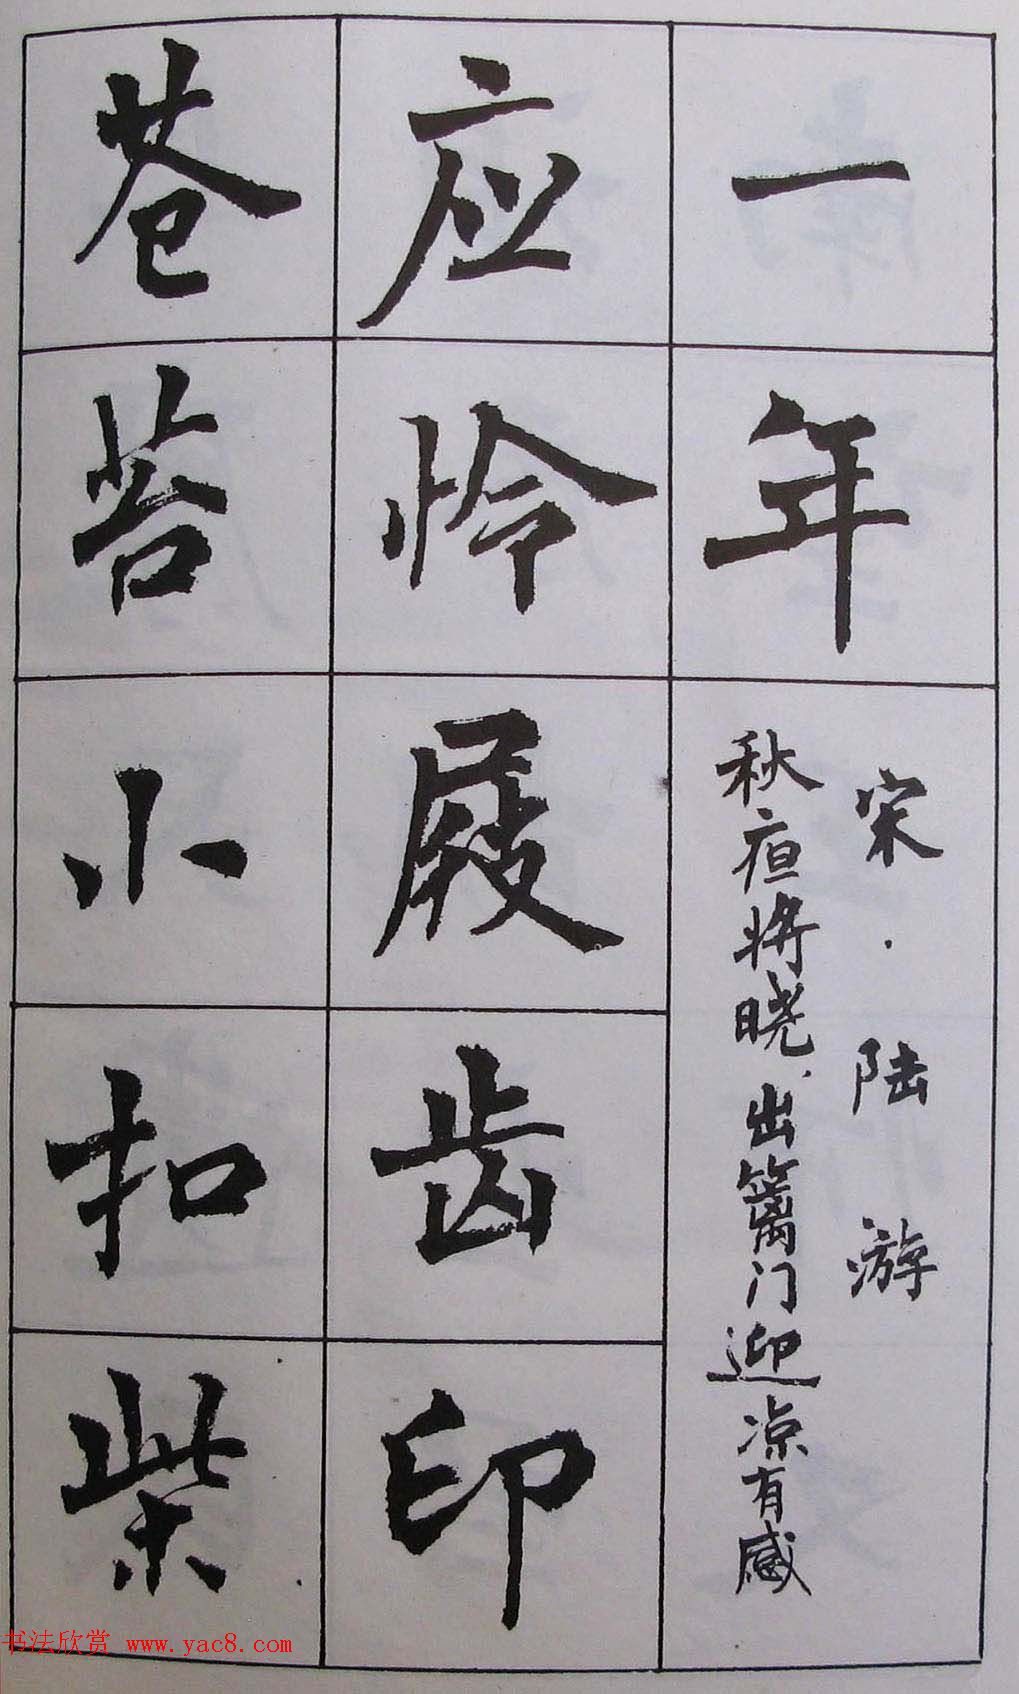 一年
宋·陆游
秋夜将晓、出篱门迎凉有感
应怜屐齿印
苍苔小扣柴
书法欣赏 www.yac8.com